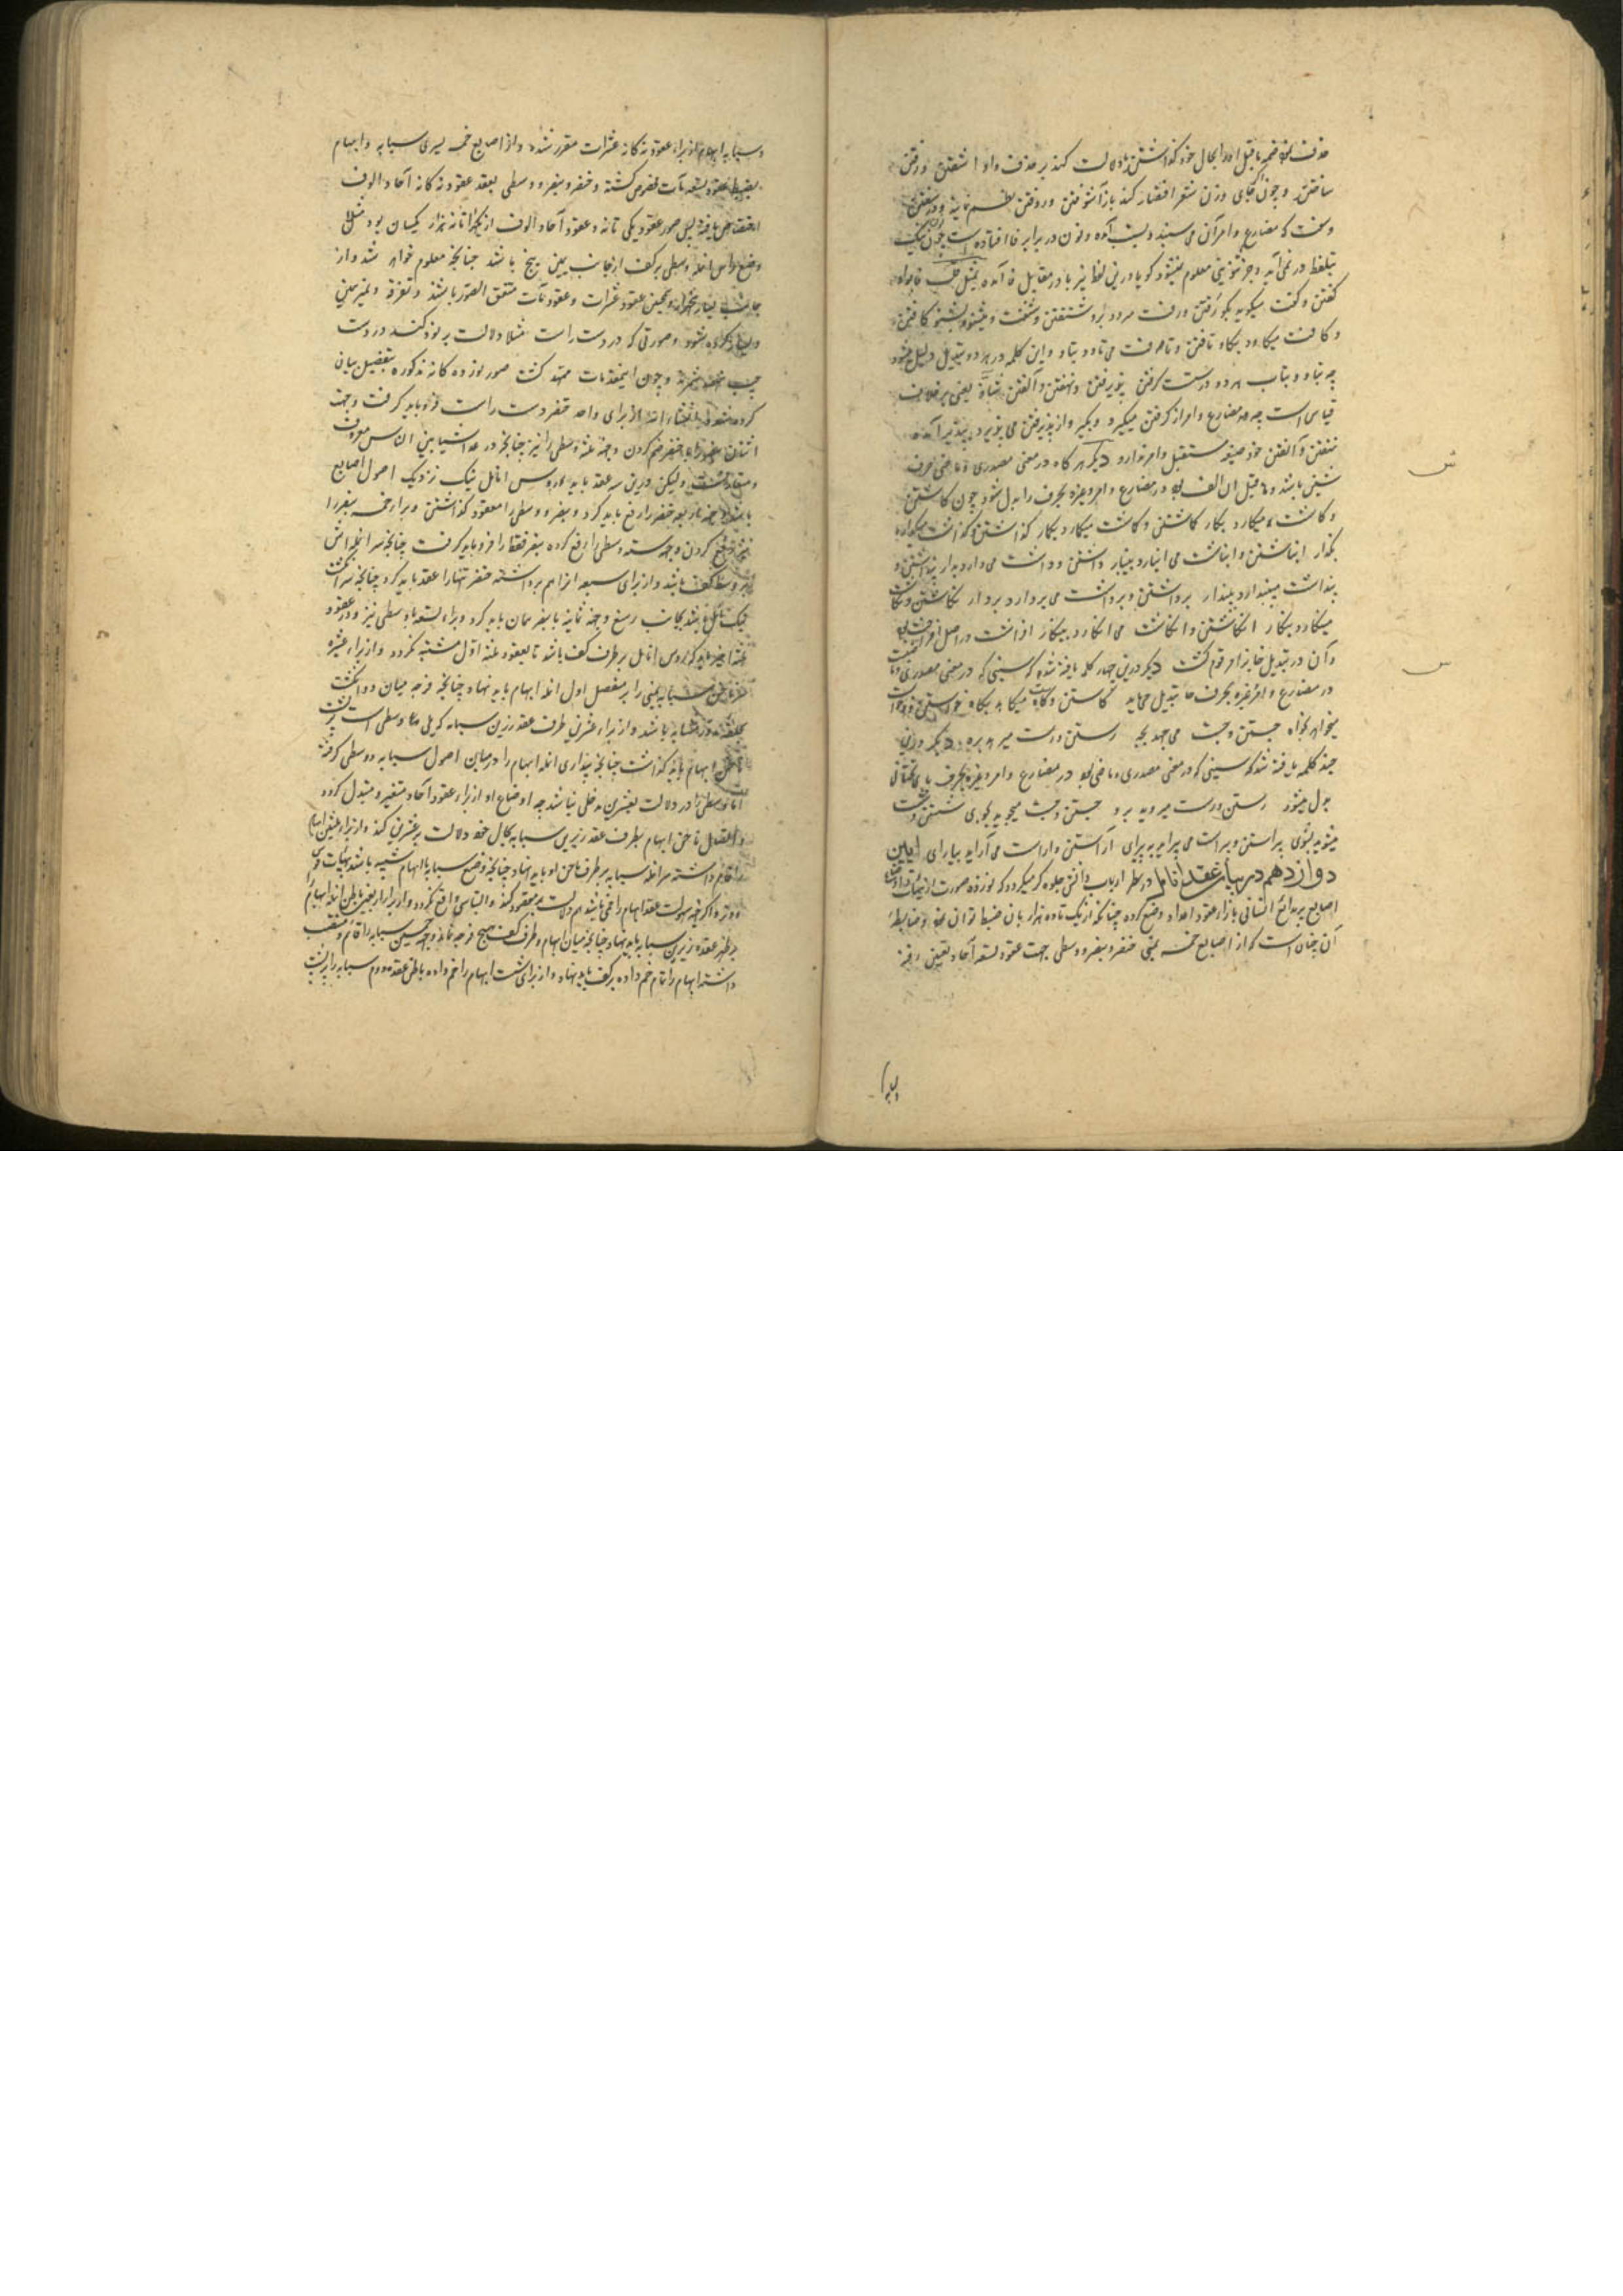 حذف نمود ضمه ما قبل او را بحال خود گذاشتن تا دلالت کند بر حذف واو
ساختن و چون بجای وزن شعر اقتضار کند باز آشوفتن و روفتن نظم نمایند
وسفت که مضارع و امر آن می سنبد و بسنب آمده و نون در برابر فا افتاده است چون یک
بتلفظ در نمی آید و جز می معلوم نمیشود گویا درین لفظ نیز با در مقابل فا آمده
گفتن و گفت میگوید بگو رفتن و رفت میرود برو شنفتن و شنفت و میشنود بشنو کافتن
و کافت میکاود بکاو تافتن و تافت می تاود بتاو و این کلمه در هر دو تبدیل داخل میشود
چه بتاو و بتاب هر دو درست گرفتن پذیرفتن و نهفتن و آلفتن شاذ یعنی بر خلاف
قیاس است چه مضارع و امر از گرفتن میگیرد و بگیر و از پذیرفتن می پذیرد و بپذیر آمده
نهفتن و آلفتن خود صیغه مستقبل و امر ندارد دیگر هر گاه در معنی مصدری و ماضی حرف
شین باشد و ما قبل آن الف بود در مضارع و امر و غیره بحرف را بدل شود چون کاشتن
و کاشت میکارد بکار گماشتن و گماشت میگمارد بگمار گذاشتن و گذاشت میگذارد
بگذار انباشتن و انباشت می انبارد بینبار داشتن و داشت می دارد بدار پنداشتن و
پنداشت میپندارد بپندار برداشتن و برداشت می بردارد بردار نگاشتن و نگاشت
مینگارد بنگار انگاشتن و انگاشت می انگارد بینگار افراشت در اصل افراخت بود
و آن در تبدیل خا بزا مرقوم گشت دیگر درین چهار کلمه یافته شده که سینی که در معنی مصدری و ماضیست
در مضارع و امر و غیره بحرف ها تبدیل می یابد کاستن و کاست میکاهد بکاه خواستن و خواست
میخواهد بخواه جستن و جست می جهد بجه رستن و رست میرهد بره دیگر درین
چند کلمه یافته شد که سینی که در معنی مصدری و ماضی بود در مضارع و امر و غیره بحرف یای تحتانی
بدل میشود رستن و رست میروید برو جستن و جست میجوید بجوی شستن و شست
میشوید بشوی پیراستن و پیراست می پیراید بپیرای آراستن و آراست می آراید بیارای آیین
دوازدهم در بیان عقد انامل در نظر ارباب دانش جلوه گر میگردد که نوزده صورت از هیئات
اصابع بر بدائع انسانی بازاء عقود اعداد وضع کرده چنانکه از یک تا ده هزار بآن ضبط توان نمود و ضابطهٔ
آن چنان است که از اصابع خمسه یمنی خنصر و بنصر و وسطی جهت عقود تسعه آحاد تعیین یافته
و سبابه
ش
س
و سبابه و ابهام از برای عقود نه گانه عشرات مقرر شده و از اصابع خمسه یسری سبابه و ابهام
بضبط عقود تسعه مآت مفروض گشته و خنصر و بنصر و وسطی بعقد عقود نه گانه آحاد الوف
اختصاص یافته پس صور عقود یکی تا نه و عقود آحاد الوف از یکهزار تا نه هزار یکسان بود مثلا
وضع راس انمله وسطی بر کف از جانب یمین پنج باشد چنانچه معلوم خواهد شد و از
جانب یسار پنجهزار و همچنین عقود عشرات و عقود مآت متفق الصور باشند و تفرقه و تمیز بیمین
و یسار کرده شود و صورتی که در دست راست مثلا دلالت بر نود کند در دست
چپ نهصد شمرند و چون این مقدمات ممهد گشت صور نوزده گانه مذکوره بتفصیل بیان
کرده میشود انشاء الله از برای واحد خنصر دست راست فرو باید گرفت و جهت
اثنان بنصر را با خنصر ضم کردن و جهة ثلثه وسطی را نیز چنانچه در عد اشیا بین الناس معروف
و متعارفست و لیکن درین سه عقد باید که روس انامل نیک نزدیک اصول اصابع
باشد و جهة اربعه خنصر را رفع باید کرد و بنصر و وسطی را معقود گذاشتن و برای خمسه بنصر را
نیز رفع کردن و جهة سته وسطی را رفع کرده بنصر فقط را فرو باید گرفت چنانچه سر انمله اش
بر وسط کف باشد و از برای سبعه آنرا هم برداشته خنصر تنها را عقد باید کرد چنانچه سر انگشت
نیک مایل باشد بجانب رسغ و جهة ثمانیه با بنصر همان باید کرد و برای تسعه با وسطی نیز و در عقود
ثلثه اخیره باید که روس انامل بر طرف کف باشد تا بعقود ثلثه اول مشتبه نگردد و از برای عشره
سر ناخن سبابه یمنی را بر مفصل اول انمله ابهام باید نهاد چنانچه فرجه میان دو انگشت
بحلقه مدور مشابه باشد و از برای عشرین طرف عقد زیرین سبابه که یلی وسطی است بر پشت
ناخن ابهام باید گذاشت چنانچه پنداری انمله ابهام را در میان اصول سبابه و وسطی گرفته
اما وسطی را در دلالت بعشرین مدخلی نباشد چه اوضاع او از برای عقود آحاد متغیر و متبدل گردد
و اتصال ناخن ابهام بطرف عقد زیرین سبابه بحال خود دلالت بر عشرین کند و از برای ثلثین ابهام
را قائم داشته سر انمله سبابه بر طرف ناخن او باید نهاد چنانچه وضع سبابه با ابهام شبیه باشد بهیأت قوس
و وتر و اگر جهة سهولت عقد ابهام را خمی باشد هم دلالت بر مقصود کند و التباس واقع نگردد و از برای اربعین باطن انمله ابهام را
بر ظهر عقد زیرین سبابه باید نهاد چنانچه میان ابهام و طرف کف هیچ فرجه نماند و جهة خمسین سبابه را قائم و منتصب
داشته ابهام را تمام خم داده بر کف باید نهاد و از برای شصت ابهام را خم داده باطن عقد دوم سبابه را بر پشت